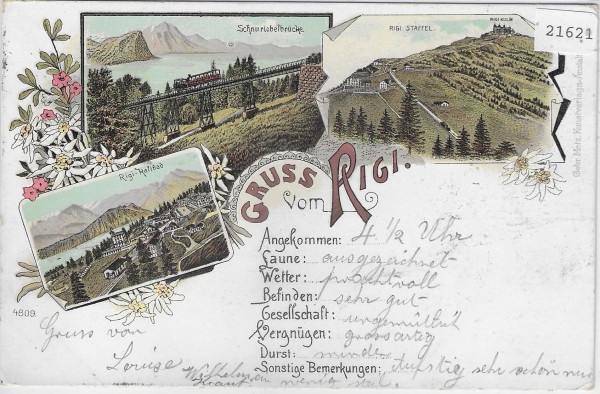 Schnurtobelbrücke.
RIGI STAFFEL.
RIGI KULM
21621
Rigi-Kaltbad
GRUSS vom RIGI.
Angekommen: 4 1/2 Uhr
Laune: ausgezeichnet
Wetter: prachtvoll
Befinden: sehr gut
Gesellschaft: urgemütlich
Vergnügen: grossartig
Durst: minder
Sonstige Bemerkungen: dunstig sehr schön
4809.
Gruss von
Louise